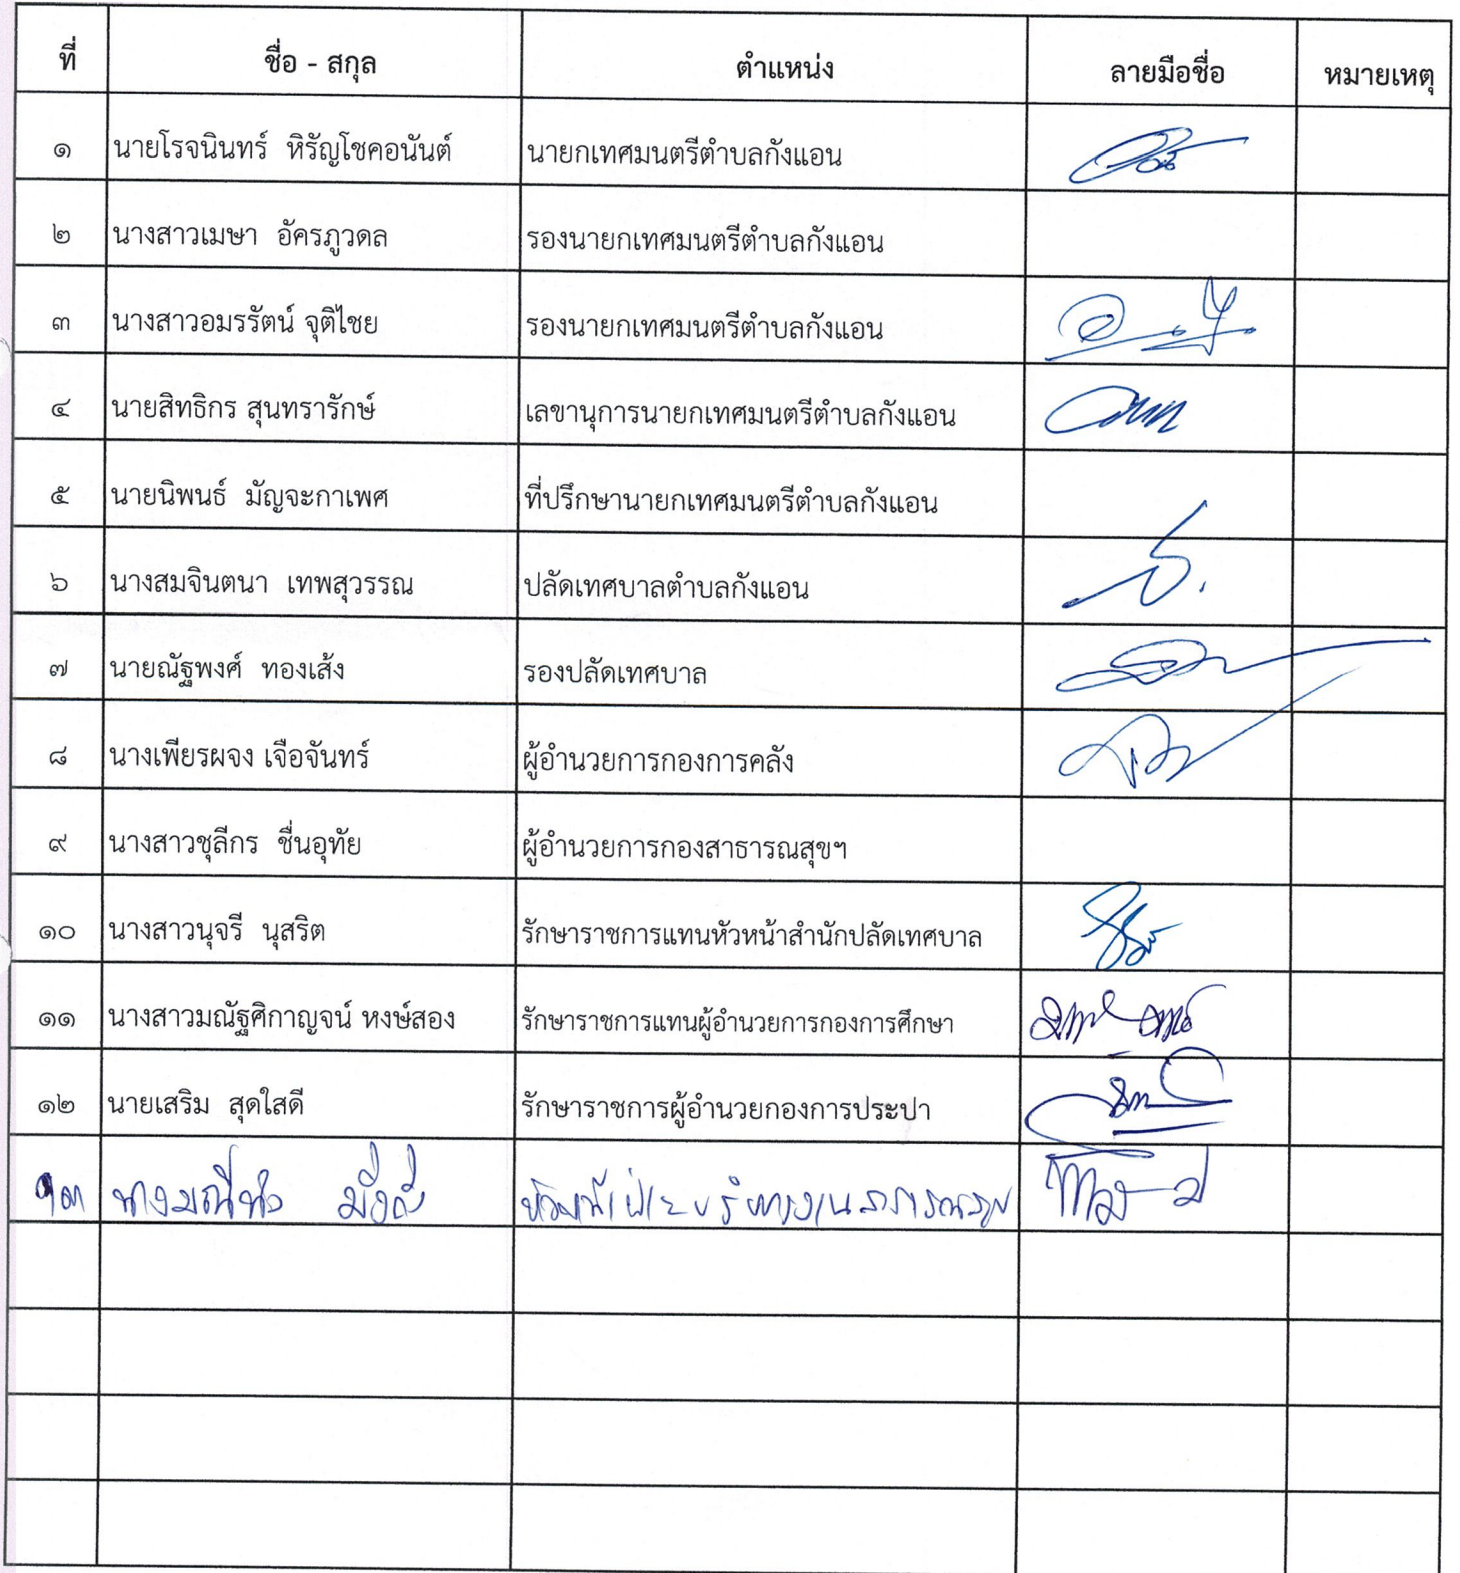 ที่ ชื่อ - สกุล ตำแหน่ง ลายมือชื่อ หมายเหตุ
๑ นายโรจนินทร์ หิรัญโชคอนันต์ นายกเทศมนตรีตำบลกังแอน
๒ นางสาวเมษา อัครภูวดล รองนายกเทศมนตรีตำบลกังแอน
๓ นางสาวอมรรัตน์ จุติไชย รองนายกเทศมนตรีตำบลกังแอน
๔ นายสิทธิกร สุนทรารักษ์ เลขานุการนายกเทศมนตรีตำบลกังแอน
๕ นายนิพนธ์ มัญจะกาเพศ ที่ปรึกษานายกเทศมนตรีตำบลกังแอน
๖ นางสมจินตนา เทพสุวรรณ ปลัดเทศบาลตำบลกังแอน
๗ นายณัฐพงศ์ ทองเส้ง รองปลัดเทศบาล
๘ นางเพียรผจง เจือจันทร์ ผู้อำนวยการกองการคลัง
๙ นางสาวชุลีกร ชื่นอุทัย ผู้อำนวยการกองสาธารณสุขฯ
๑๐ นางสาวนุจรี นุสริต รักษาราชการแทนหัวหน้าสำนักปลัดเทศบาล
๑๑ นางสาวมณัฐศิกาญจน์ หงษ์สอง รักษาราชการแทนผู้อำนวยการกองการศึกษา
๑๒ นายเสริม สุดใสดี รักษาราชการผู้อำนวยกองการประปา
๑๓